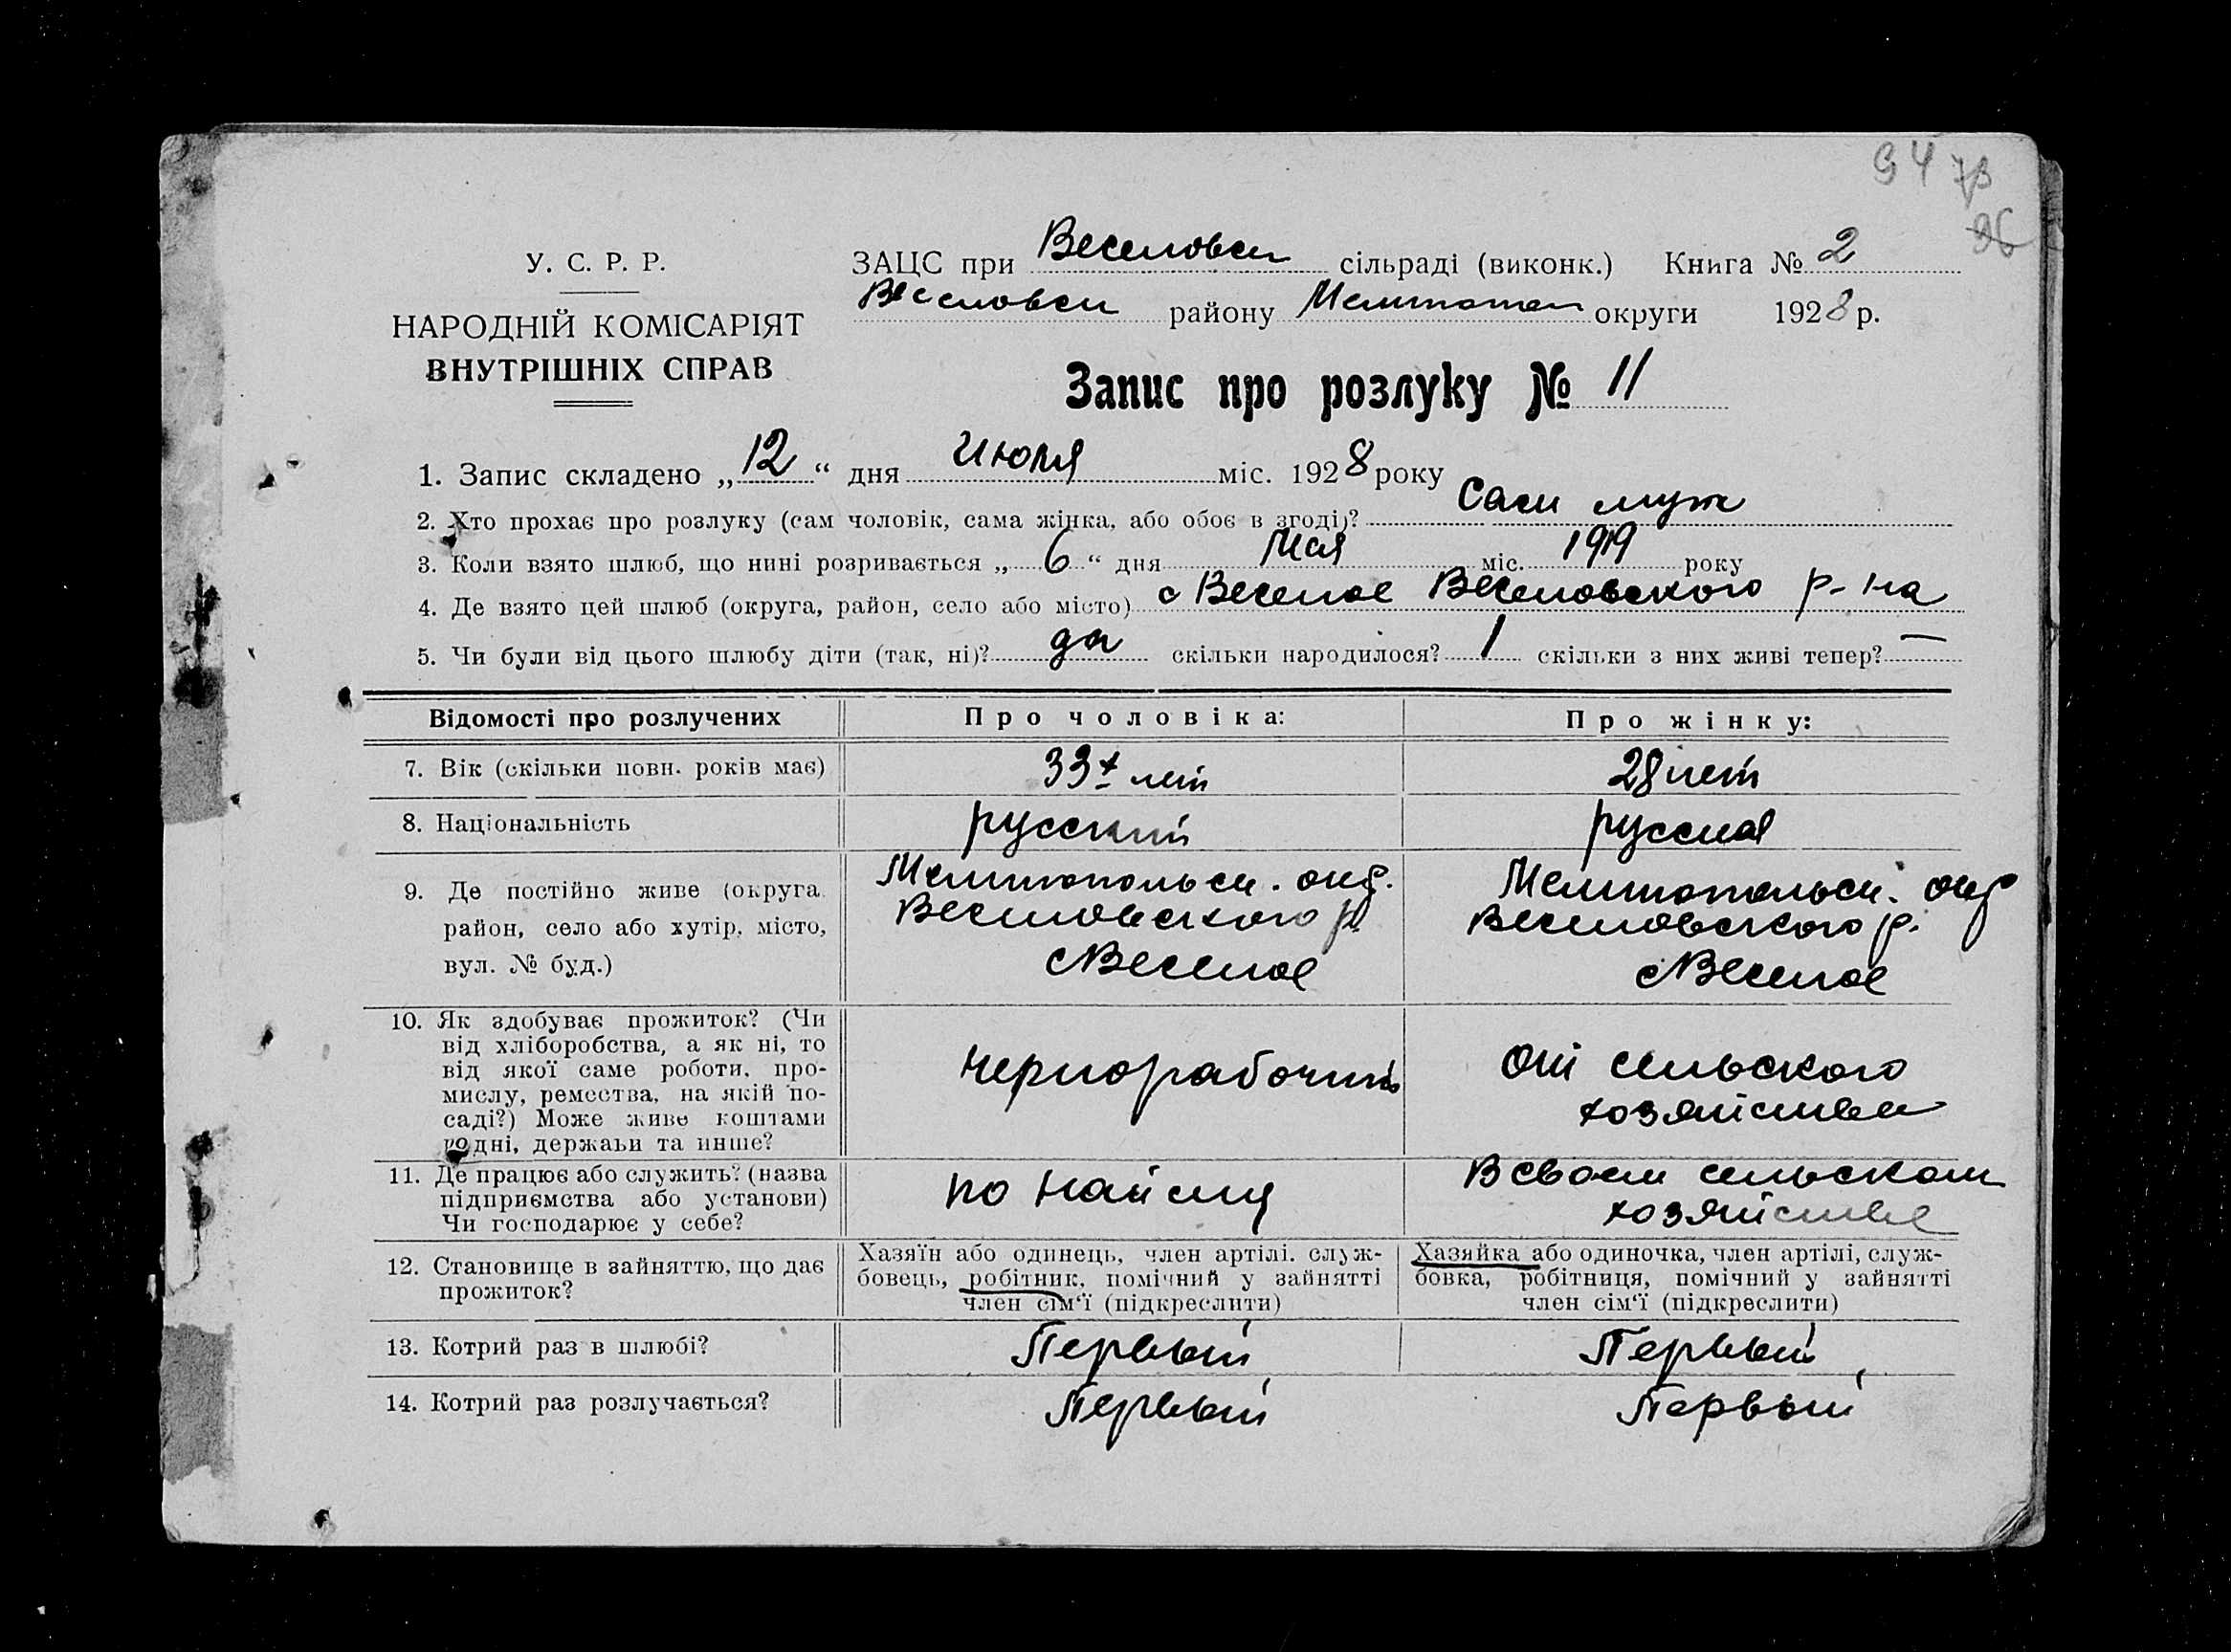 94
96
У. С. Р. Р.
НАРОДНІЙ КОМІСАРІЯТ
ВНУТРІШНІХ СПРАВ
ЗАЦС при Веселовск сільраді (виконк.) Книга № 2
Веселовск району Мелитопол округи 1928 р.
Запис про розлуку № 11
1. Запис складено „12“ дня Июля міс. 1928 року
2. Хто прохає про розлуку (сам чоловік, сама жінка, або обоє в згоді)? Сам муж
3. Коли взято шлюб, що нині розривається „6“ дня Мая міс. 1919 року
4. Де взято цей шлюб (округа, район, село або місто) с Веселое Веселовского р-на
5. Чи були від цього шлюбу діти (так, ні)? да скільки народилося? 1 скільки з них живі тепер? —
Відомості про розлучених Про чоловіка: Про жінку:
7. Вік (скільки повн. років має) 33 лет 28 лет
8. Національність русский русская
9. Де постійно живе (округа, район, село або хутір, місто, вул. № буд.)
Мелитопольск. окр.
Веселовского р.
с Веселое
Мелитопольск. окр
Веселовского р.
с Веселое
10. Як здобуває прожиток? (Чи
від хліборобства, а як ні, то
від якої саме роботи, про-
мислу, ремества, на якій по-
саді?) Може живе коштами
родні, держави та инше?
чернорабочий
От сельского
хозяйства
11. Де працює або служить? (назва
підприємства або установи)
Чи господарює у себе?
по найму
В своем сельском
хозяйстве
12. Становище в зайняттю, що дає
прожиток?
Хазяїн або одинець, член артілі, служ-
бовець, робітник, помічний у зайнятті
член сім‘ї (підкреслити)
Хазяйка або одиночка, член артілі, служ-
бовка, робітниця, помічний у зайнятті
член сім‘ї (підкреслити)
13. Котрий раз в шлюбі? Первый Первый
14. Котрий раз розлучається? Первый Первый